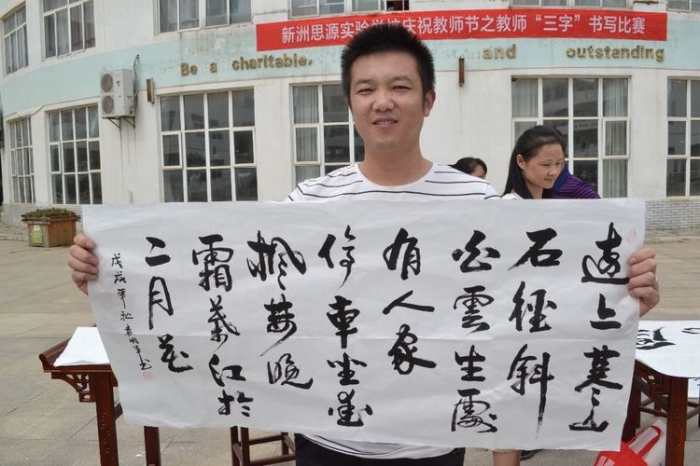 新洲思源实验学校庆祝教师节之教师“三字”书写比赛
Be a charitable, and outstanding
遠上寒山
石徑斜
白雲生處
有人家
停車坐愛
楓林晚
霜葉红於
二月花
戊戌年秋